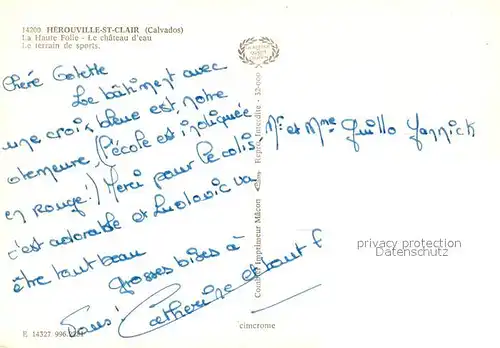 14200 HÉROUVILLE-ST-CLAIR (Calvados)
La Haute Folie - Le château d'eau
Le terrain de sports.
Chéré Colette
Le bâtiment avec
une croix bleue est notre
demeure, (l'école est indiquée
en Rouge!) Merci pour le colis
c'est adorable et Ludovic va
être tout beau
grosses bises à
tous!
Catherine et tout
Mr et Mme Guillo Yannick
Combier Imprimeur Mâcon Repro. Interdite - 32-000
privacy protection
Datenschutz
E 14327 996.
cimcrome